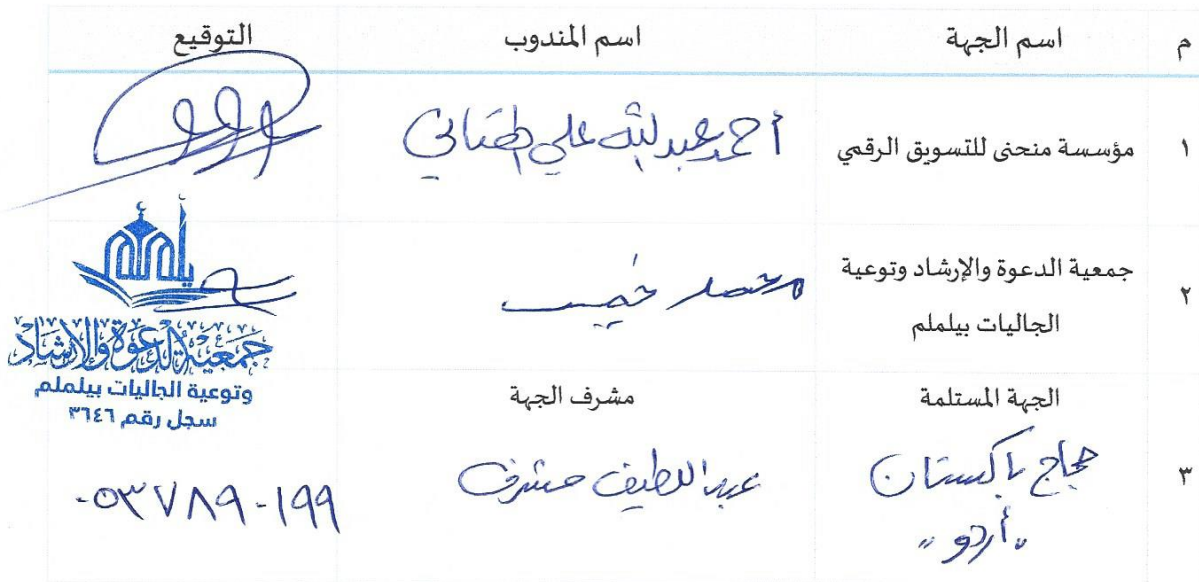 م اسم الجهة اسم المندوب التوقيع
١ مؤسسة منحنى للتسويق الرقمي أحمد عبدالله علي
٢ جمعية الدعوة والإرشاد وتوعية الجاليات بيلملم محمد
يلملم
جمعية الدعوة والإرشاد
وتوعية الجاليات بيلملم
سجل رقم ٣٦٤٦
الجهة المستلمة مشرف الجهة
٣ حجاج باكستان عبد اللطيف مشرف ٠٥٣٧٨٩٠١٩٩
"أردو"